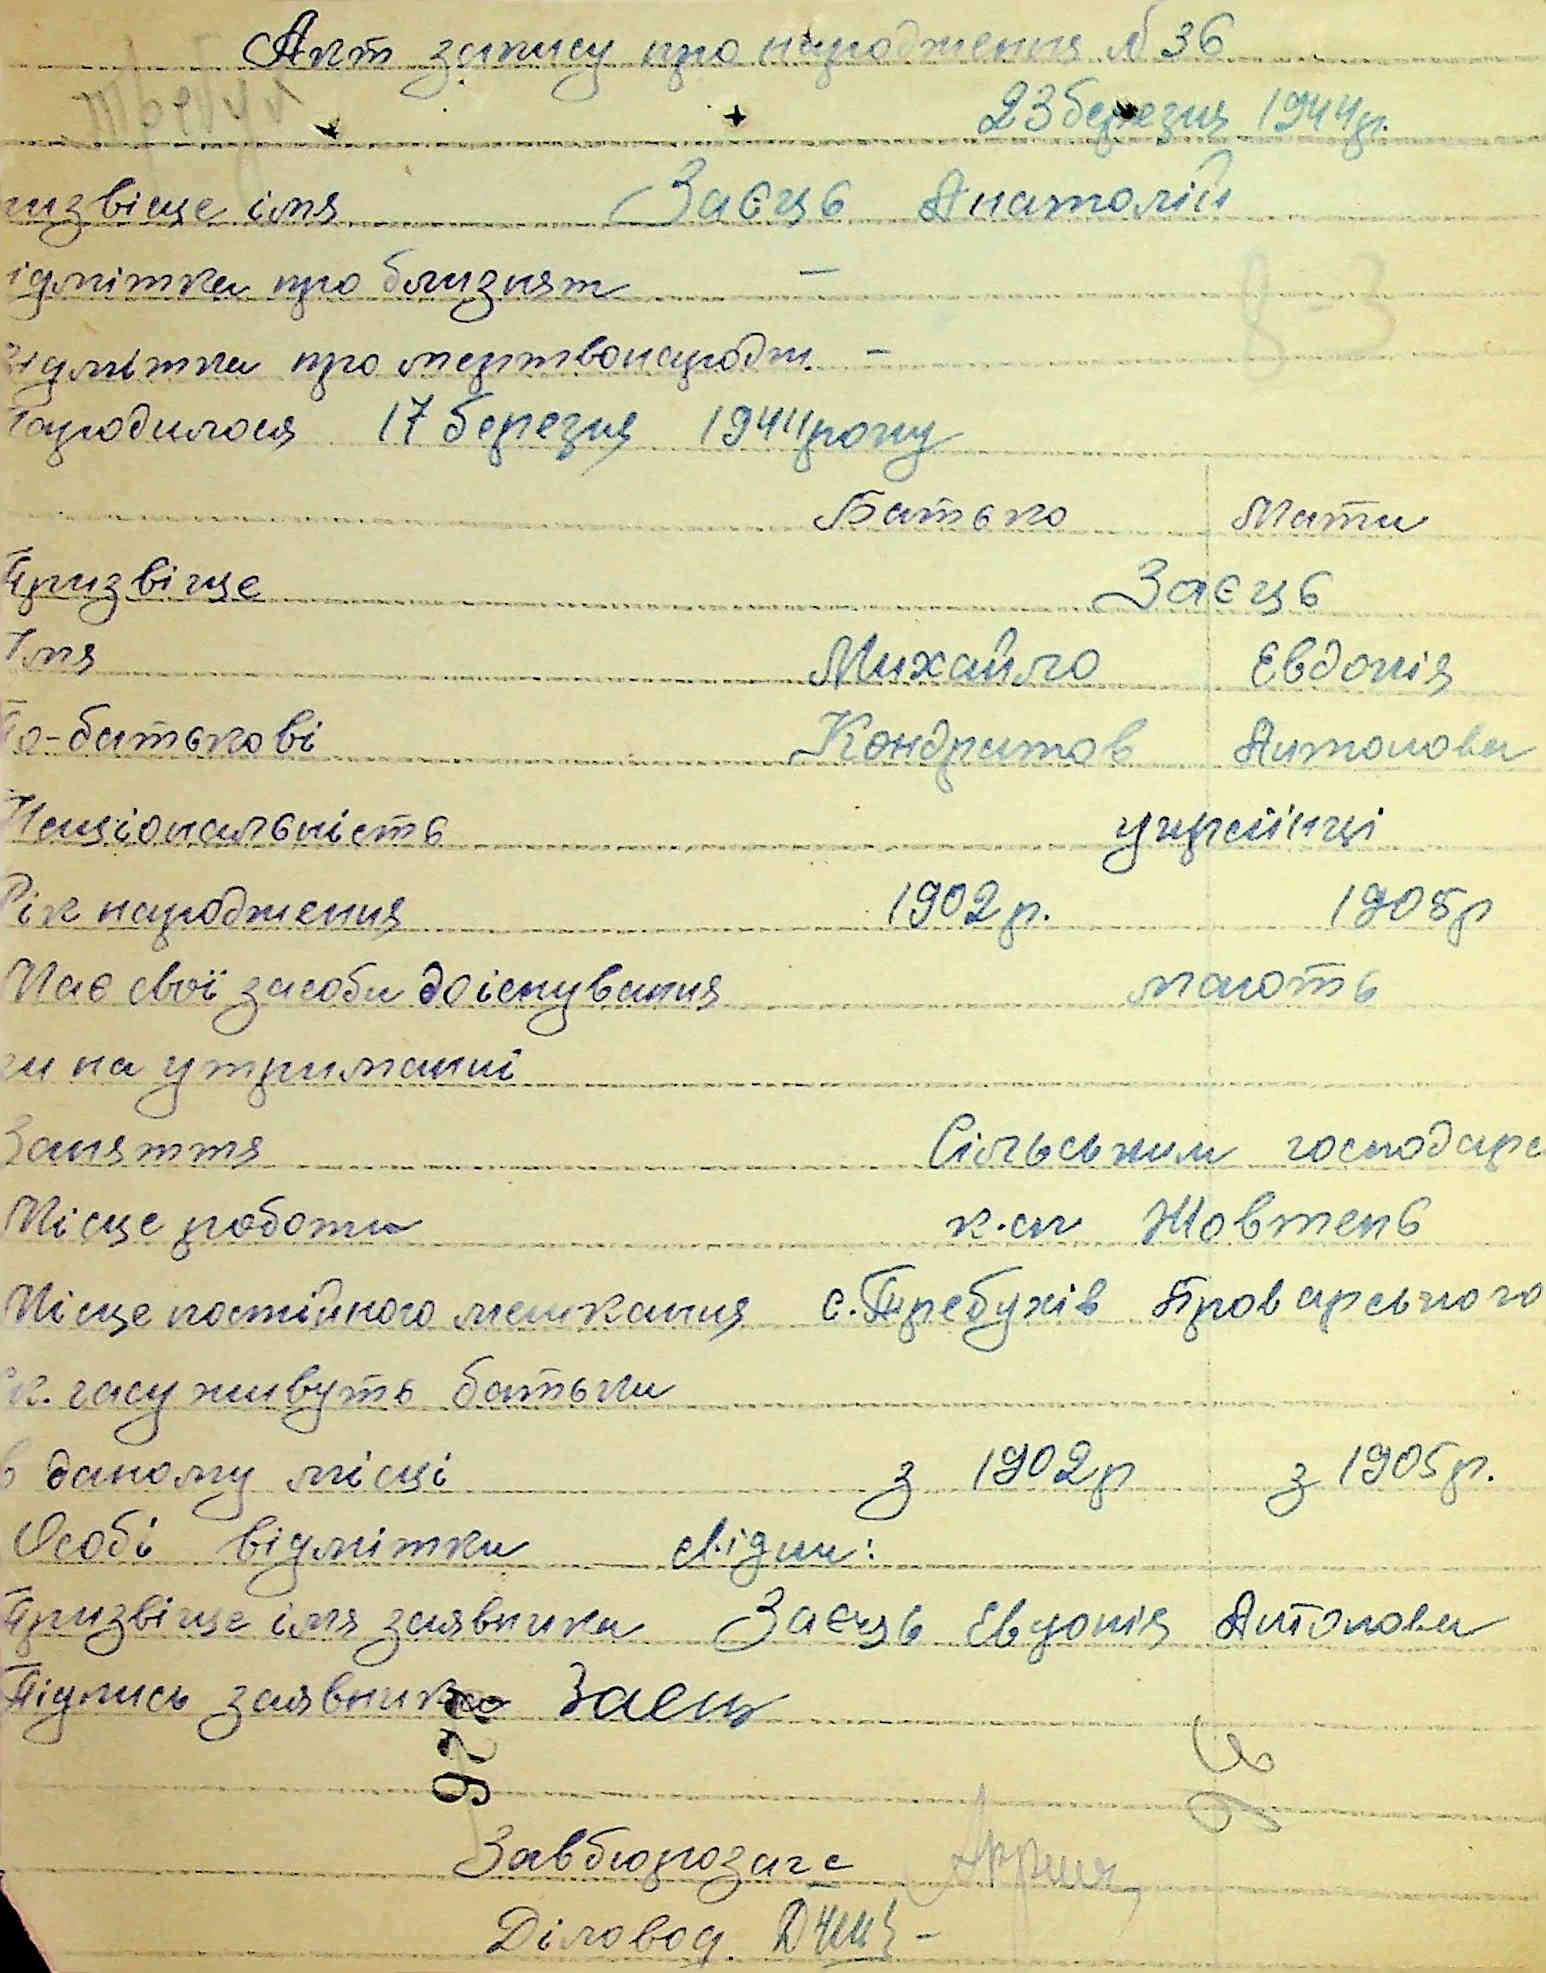 Акт запису про народження №36
23 березня 1944р.
ризвіще імя Заєць Анатолій
ідмітка про близнят —
ідмітка про мертвонародж. —
народилося 17 березня 1944 року
Батько Мати
Призвіще Заєць
Імя Михайло Євдокія
По-батькові Кондратов Антонова
Національність українці
Рік народження 1902 р. 1905 р
Має свої засоби до існування мають
чи на утриманні
Заняття Сільським господарс
Місце роботи к.сп Жовтень
Місце постійного мешкання с. Требухів Броварського
як. часу живуть батьки
в даному місці з 1902 р з 1905 р.
Особі відмітки свідки:
Призвіще імя заявника Заєць Євдокія Антонова
Підпись заявника Заец
972
36
Завбюрозагс
Діловод.